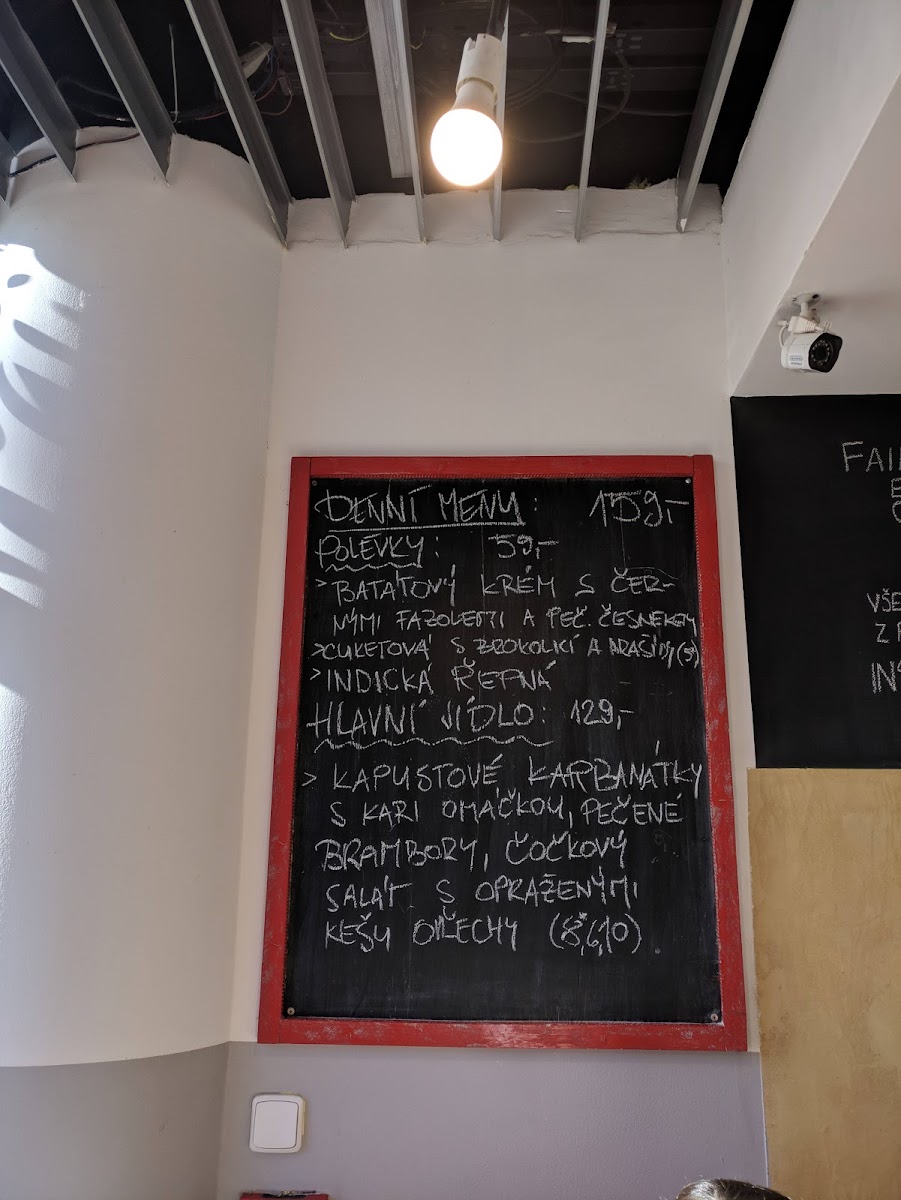 DENNÍ MENU: 159,-
POLÉVKY: 59,-
> BATÁTOVÝ KRÉM S ČER-
NÝMI FAZOLEMI A PEČ. ČESNEKEM
> CUKETOVÁ S BROKOLICÍ A ARAŠÍDY (5)
> INDICKÁ ŘEPNÁ
HLAVNÍ JÍDLO: 129,-
> KAPUSTOVÉ KARBANÁTKY
S KARI OMÁČKOU, PEČENÉ
BRAMBORY, ČOČKOVÝ
SALÁT S OPRAŽENÝMI
KEŠU OŘECHY (8,6,10)
FAI
VŠE
Z
IN